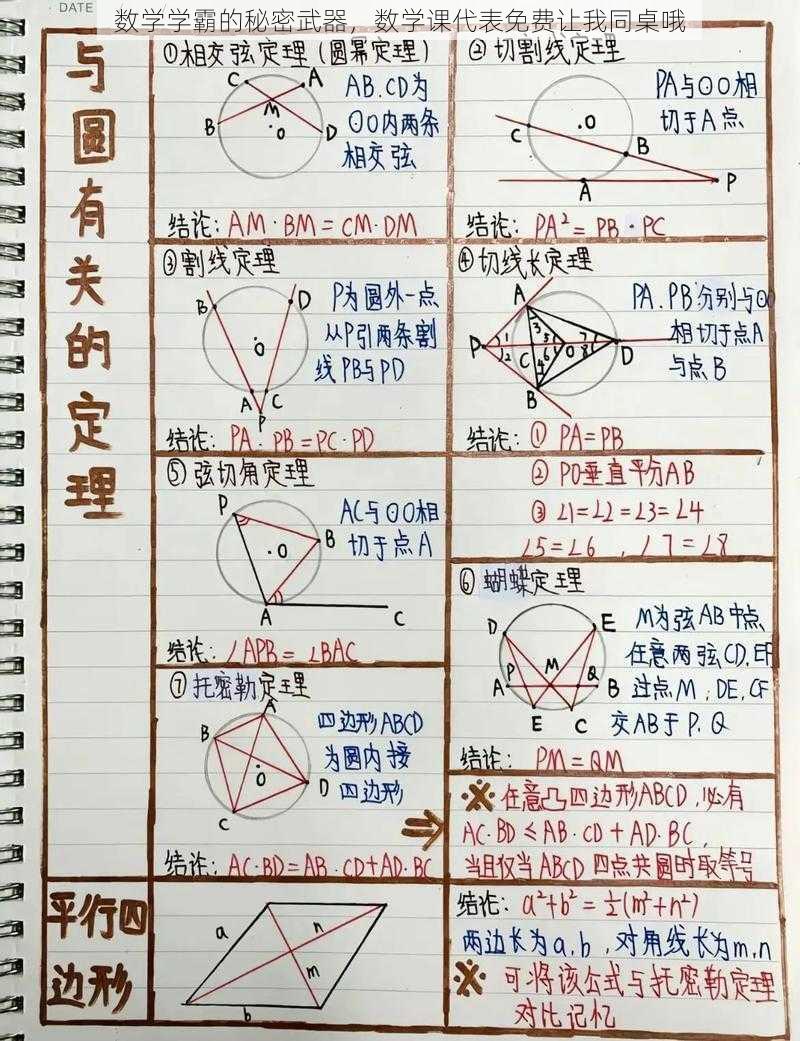 DATE
数学学霸的秘密武器，数学课代表免费让我同桌哦
与圆有关的定理
①相交弦定理(圆幂定理)
C
A
B
M
O
D
AB.CD为
⊙O内两条
相交弦
结论: AM·BM=CM·DM
②切割线定理
C
O
B
A
P
PA与⊙O相
切于A点
结论: PA²=PB·PC
③割线定理
B
D
O
A
C
P
P为圆外一点
从P引两条割
线PB与PD
结论: PA·PB=PC·PD
④切线长定理
A
P
1
2
3
4
5
6
7
8
C
O
D
B
PA.PB分别与⊙O
相切于点A
与点B
结论: ① PA=PB
② PO垂直平分AB
③ ∠1=∠2=∠3=∠4
∠5=∠6 , ∠7=∠8
⑤弦切角定理
P
O
B
A
C
AC与⊙O相
切于点A
结论: ∠APB=∠BAC
⑥蝴蝶定理
D
E
A
P
M
Q
B
E
C
M为弦AB中点
任意两弦CD,EF
过点M,DE,CF
交AB于P,Q
结论: PM=QM
⑦托密勒定理
A
B
O
D
C
四边形ABCD
为圆内接
四边形
结论: AC·BD=AB·CD+AD·BC
※任意凸四边形ABCD,必有
AC·BD≤AB·CD+AD·BC,
当且仅当ABCD四点共圆时取等号
平行四
边形
a
n
m
b
结论: a²+b²=½(m²+n²)
两边长为a,b,对角线长为m,n
※ 可将该公式与托密勒定理
对比记忆